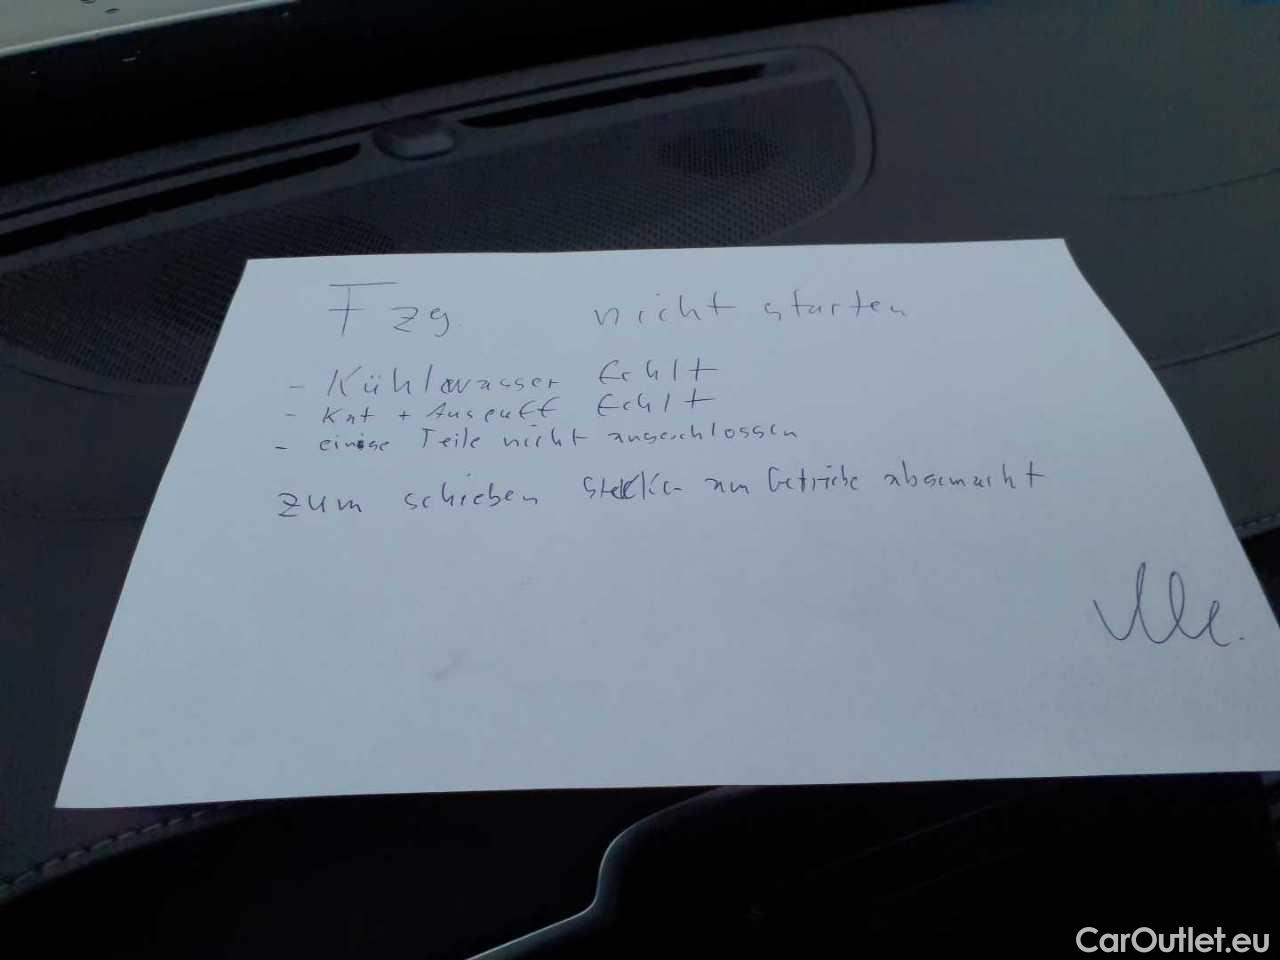 Fzg. nicht starten
- Kühlwasser fehlt
- Kat + Auspuff fehlt
- einige Teile nicht angeschlossen
zum schieben Stecker am Getriebe abgemacht
CarOutlet.eu